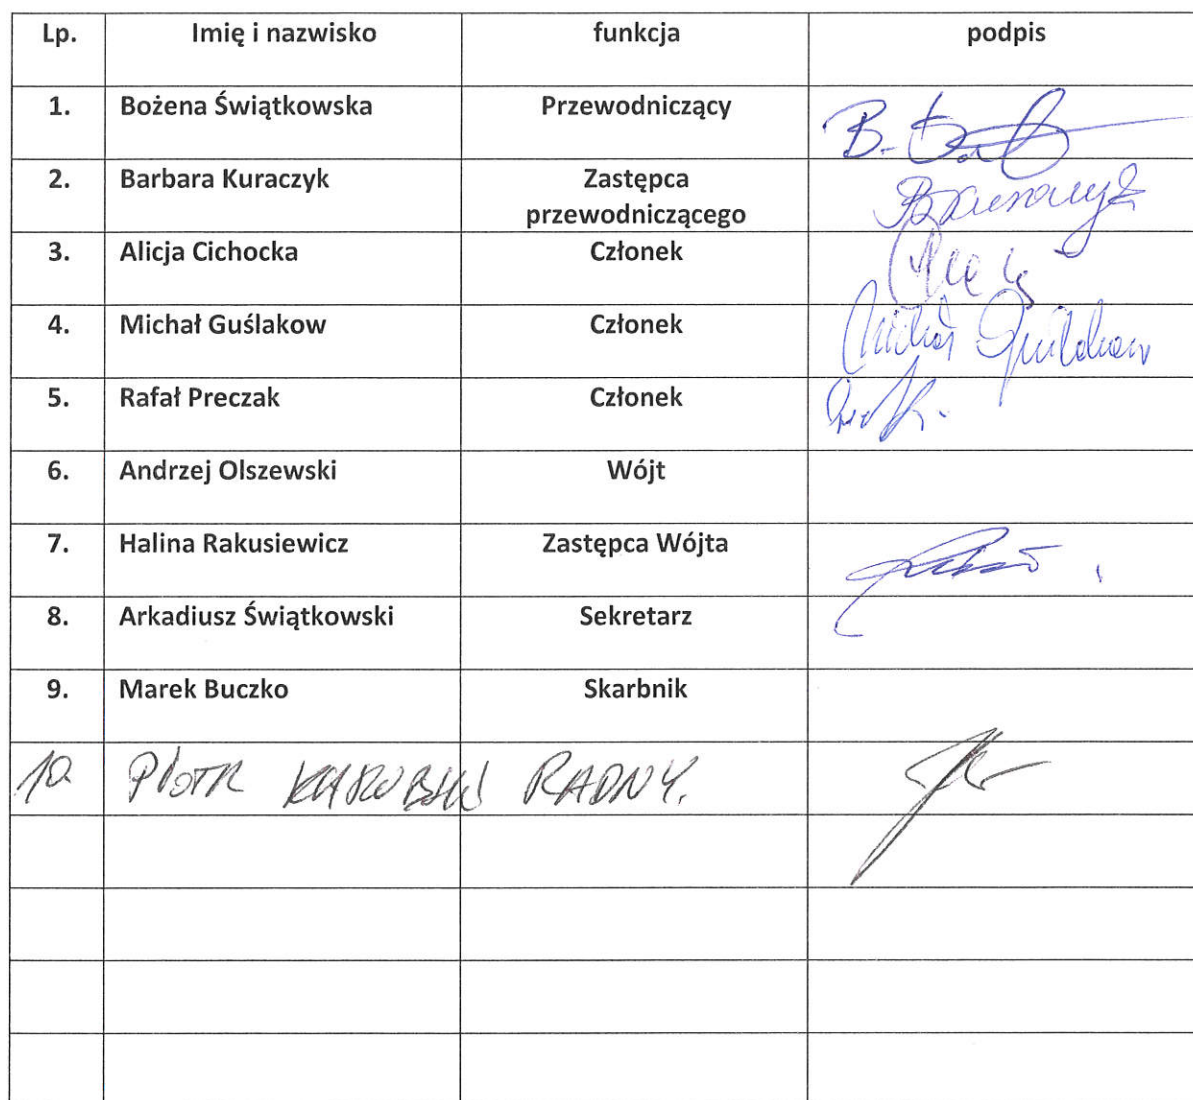 Lp. Imię i nazwisko funkcja podpis
1. Bożena Świątkowska Przewodniczący
2. Barbara Kuraczyk Zastępca
przewodniczącego
3. Alicja Cichocka Członek
4. Michał Guślakow Członek
5. Rafał Preczak Członek
6. Andrzej Olszewski Wójt
7. Halina Rakusiewicz Zastępca Wójta
8. Arkadiusz Świątkowski Sekretarz
9. Marek Buczko Skarbnik
10 PIOTR RADNY.